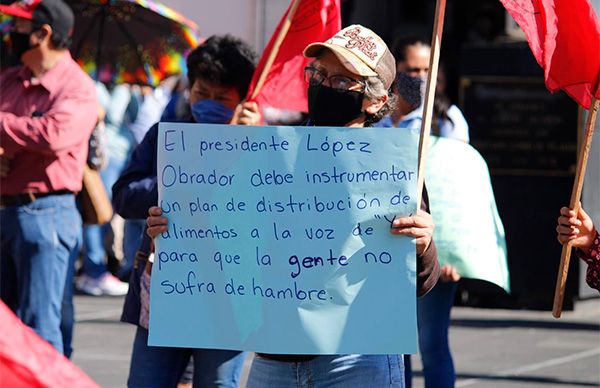 El presidente López
Obrador debe instrumentar
un plan de distribución de
alimentos a la voz de "Y
para que la gente no
sufra de hambre.